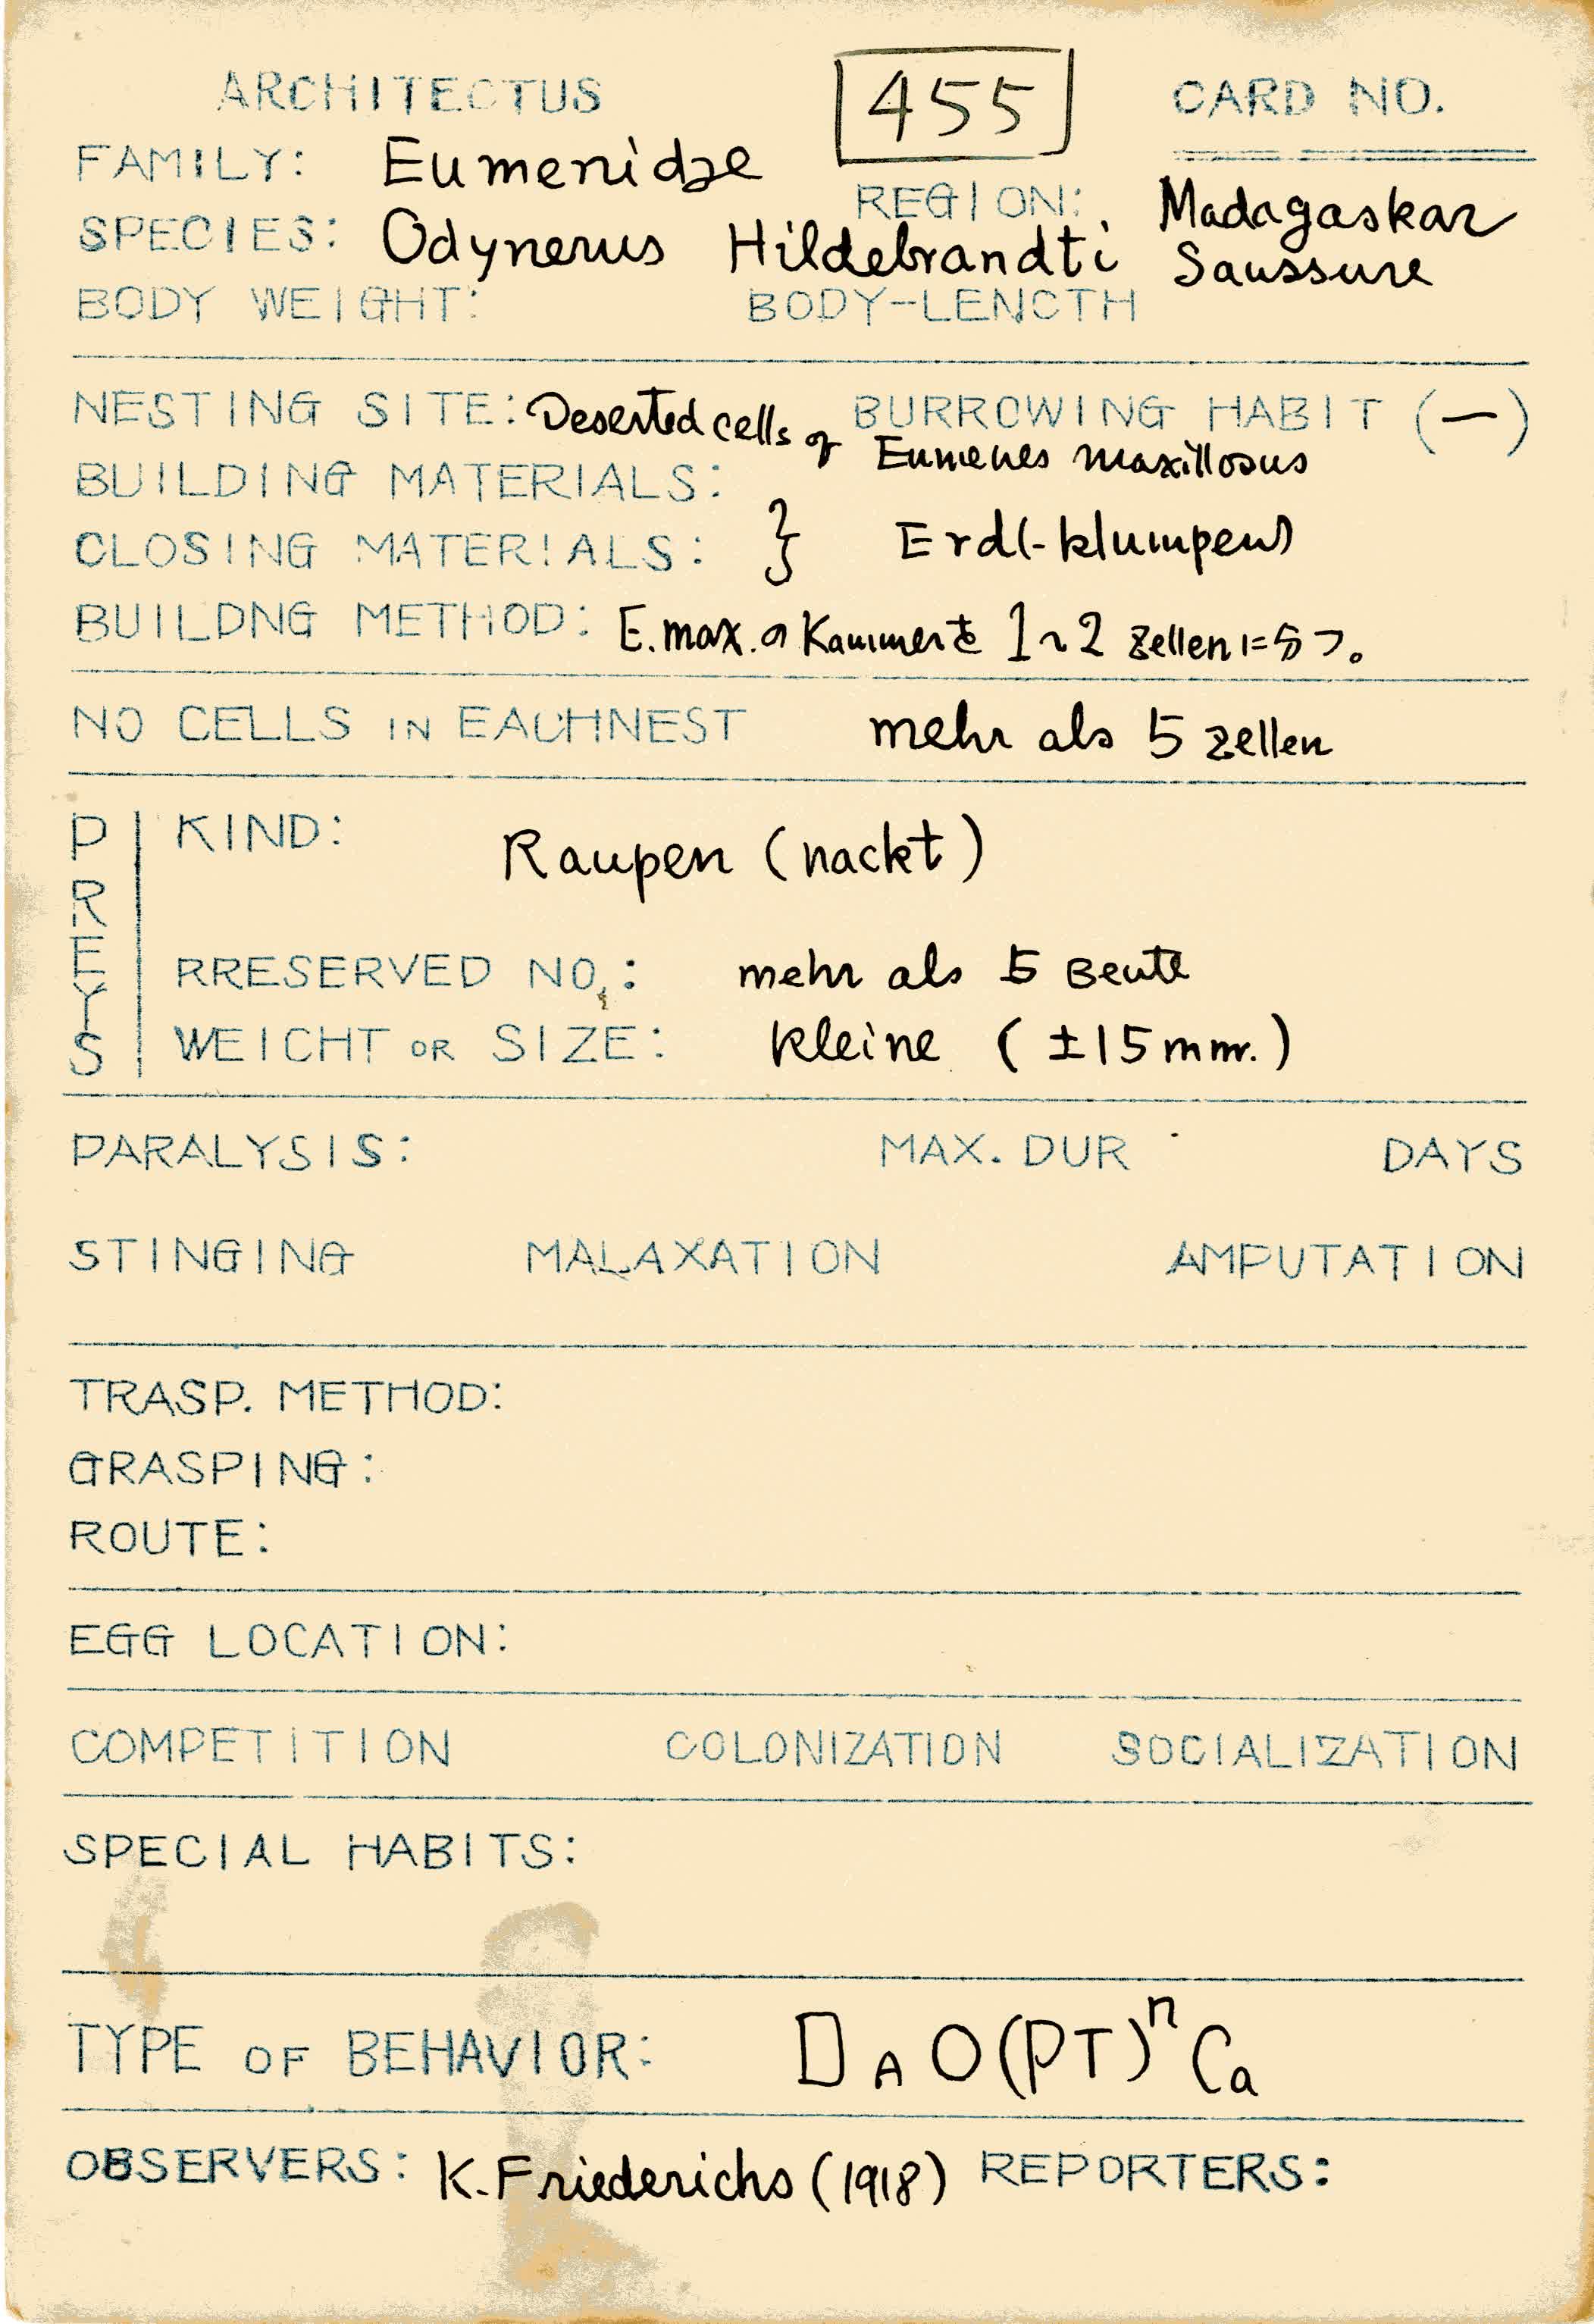 ARCHITECTUS 455 CARD NO.
FAMILY: Eumenidae
REGION: Madagaskar
SPECIES: Odynerus Hildebrandti Saussure
BODY WEIGHT: BODY-LENCTH
NESTING SITE: Deserted cells of Eumenes maxillosus BURROWING HABIT (—)
BUILDING MATERIALS:
CLOSING MATERIALS: } Erd(-klumpen)
BUILDNG METHOD: E.max. の Kammerを 1~2 Zellenに気う。
NO CELLS IN EACHNEST mehr als 5 zellen
PREYS
KIND: Raupen (nackt)
RRESERVED NO.: mehr als 5 Beute
WEICHT OR SIZE: kleine (±15mm.)
PARALYSIS: MAX. DUR DAYS
STINGING MALAXATION AMPUTATION
TRASP. METHOD:
GRASPING:
ROUTE:
EGG LOCATION:
COMPETITION COLONIZATION SOCIALIZATION
SPECIAL HABITS:
TYPE OF BEHAVIOR: D A O(PT)ⁿ Ca
OBSERVERS: K. Friederichs (1918) REPORTERS: